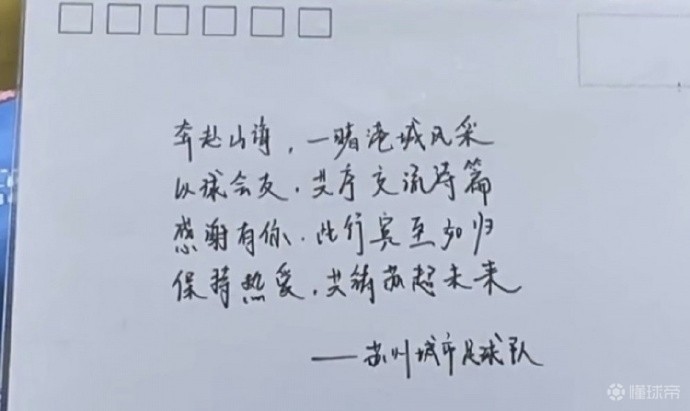 奔赴山海，一睹港城风采
以球会友，共序交流诗篇
感谢有你，此行宾至如归
保持热爱，共铸苏超未来
——苏州城市足球队
懂球帝